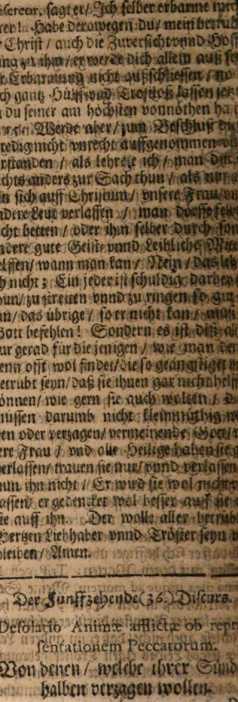 sereor, sagt er/ Ich selber erbarme mich
Habe derowegen du/ mein betrub
Christ/ auch die Zuversicht vnnd Hof
zu ihm/ er werde dich allein auß se
Erbarmung nicht außschliessen/ no
ch gantz Hülff vnd Trostloß lassen jetz
du seiner am höchsten vonnöthen ha
Werde aber/ zum Beschluß
redig nicht vnrecht auffgenommen
rstanden/ als lehrete ich/ man dör
chts anders zur Sach thun/ als nur
n sich auff Christum/ vnsere Frau
ndere Leut verlassen/ man dörffe
cht betten/ oder ihm selber durch
ndere gute Geist vnnd Leibliche Mit
elffen/ wann man kan/ Nein/ das
ch nicht: Ein jeder ist schuldig darbey
hun/ zu streiten vnnd zu ringen so gut
an/ das übrige/ so er nicht kan/ muß
Gott befehlen! Sondern es ist diß al
ur gerad für die jenigen/ wie man der
enn offt wol findet/ die so geängstiget
etrubt seyn/ daß sie ihnen gar nicht helff
önnen/ wie gern sie auch wolten/ D
müssen darumb nicht kleinmüthig
en oder verzagen/ vermeinende/ Gott/
ere Frau/ vnd alle Heilige haben sie
erlassen/ trauen sie nur/ vnnd verlassen
nun ihn nicht/ Er wird sie wol nicht
assen/ er gedencket wol besser auff sie
sie auff ihn. Der wolle aller betrub
Hertzen Liebhaber vnnd Tröster seyn
bleiben/ Amen.
Der Funffzehende (36.) Discurs.
Desolatio Animæ afflictæ ob repræ
sentationem Peccatorum.
Von denen/ welche ihrer Sünd
halben verzagen wollen.